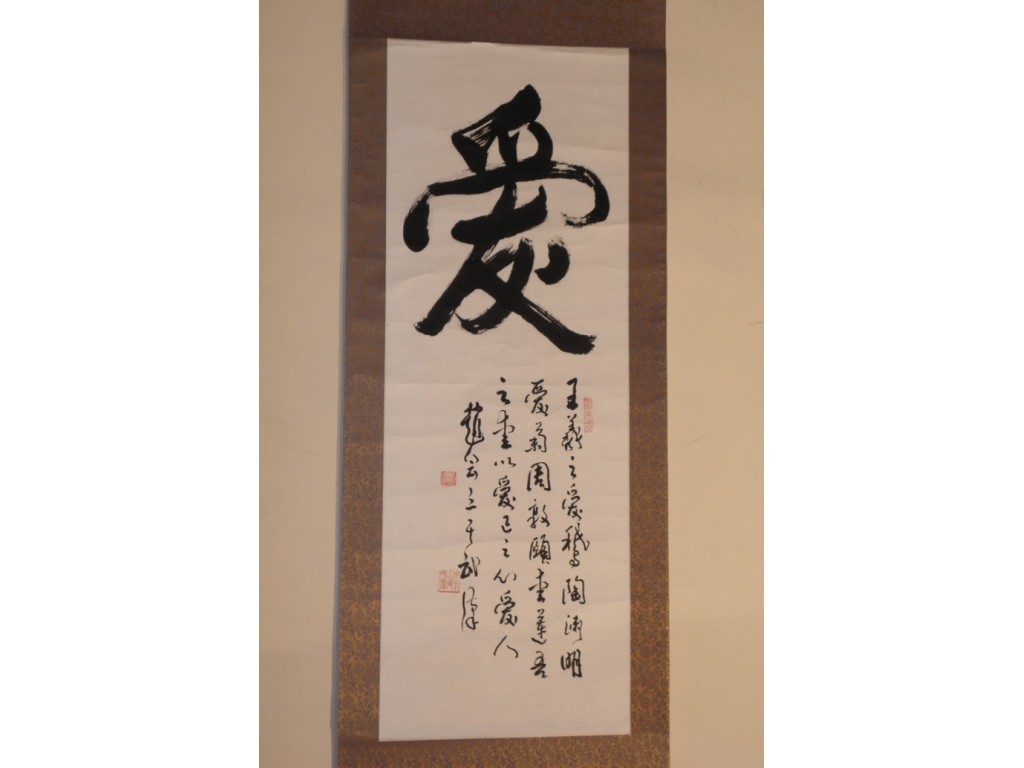 愛
王羲之愛鵝陶淵明
愛菊周敦頤愛蓮吾
之愛以愛己之心愛人